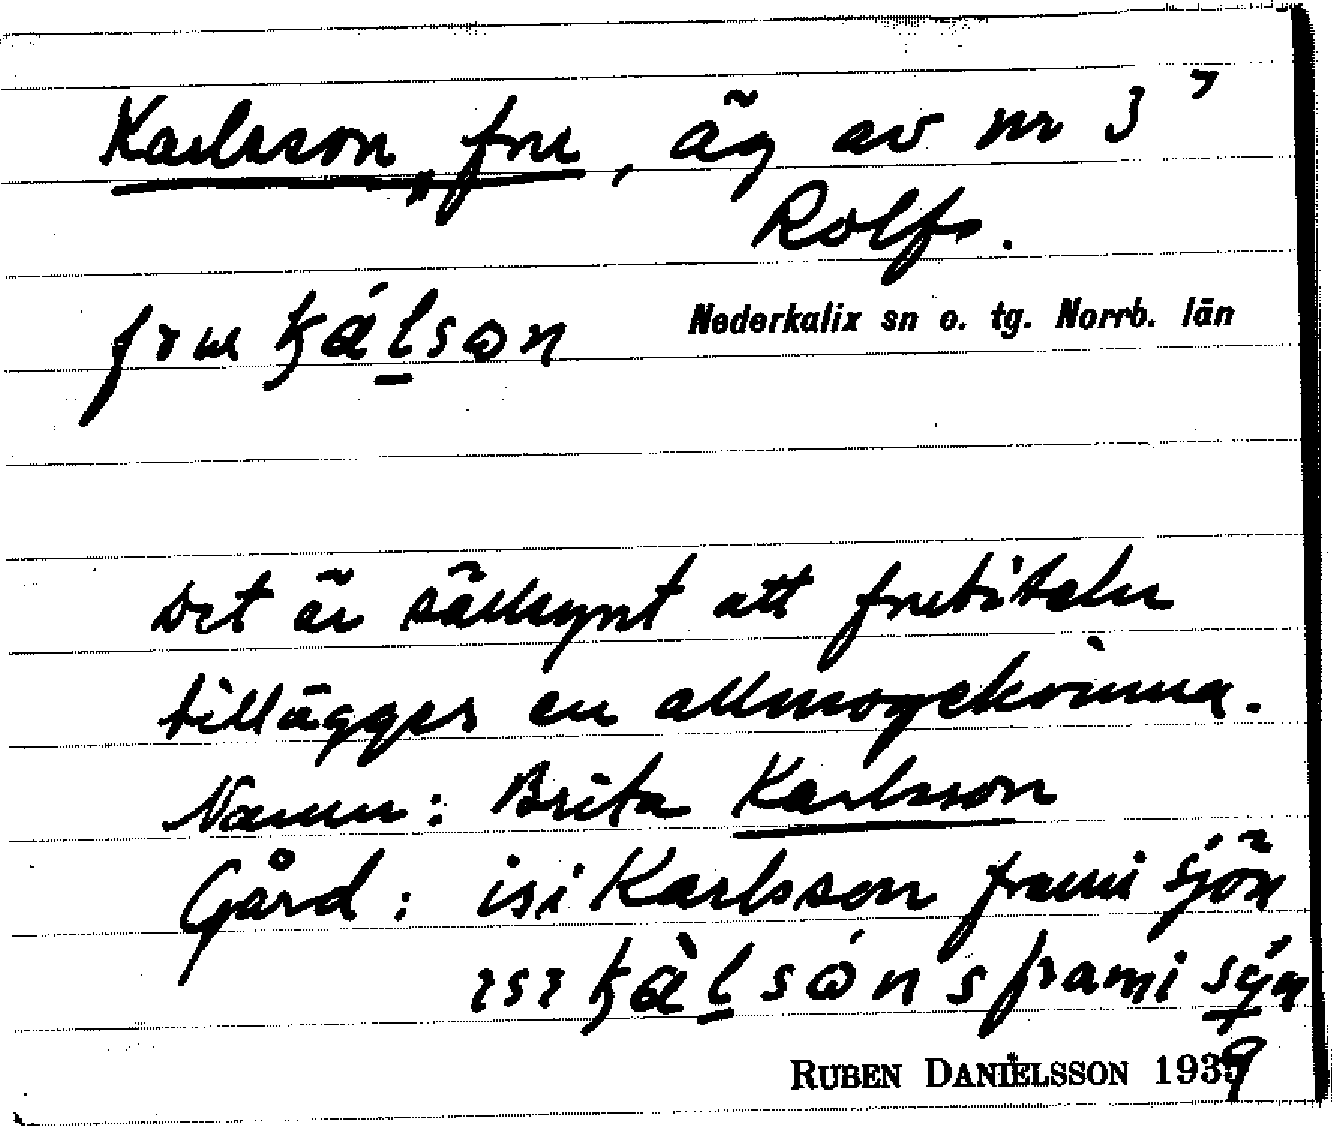 Karlsson, fru, äg av nr 3⁷
Rolfs.
fru kálson Nederkalix sn o. tg. Norrb. län
Det är sällsynt att frutiteln
tillägges en allmogekvinna.
Namn: Brita Karlsson
Gård: isi Karlsson frami sjön
ısı kàlsón s frami sýn
RUBEN DANIELSSON 1939